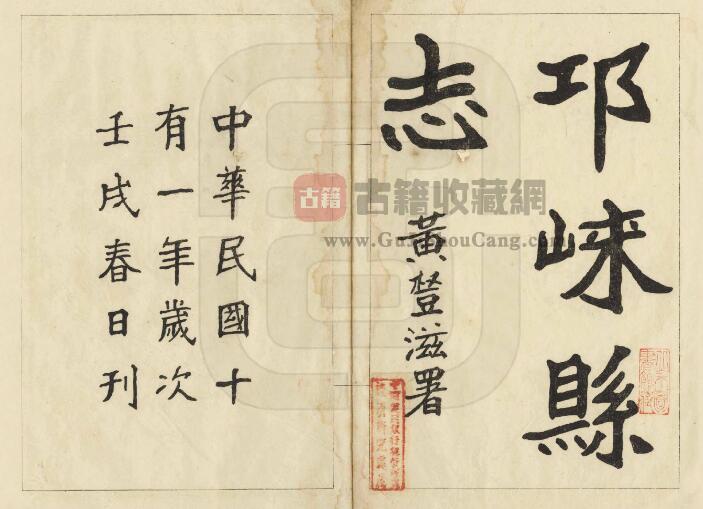 邛崍縣
志
黃登滋署
中華民國十
有一年歲次
壬戌春日刊
古籍
古籍收藏網